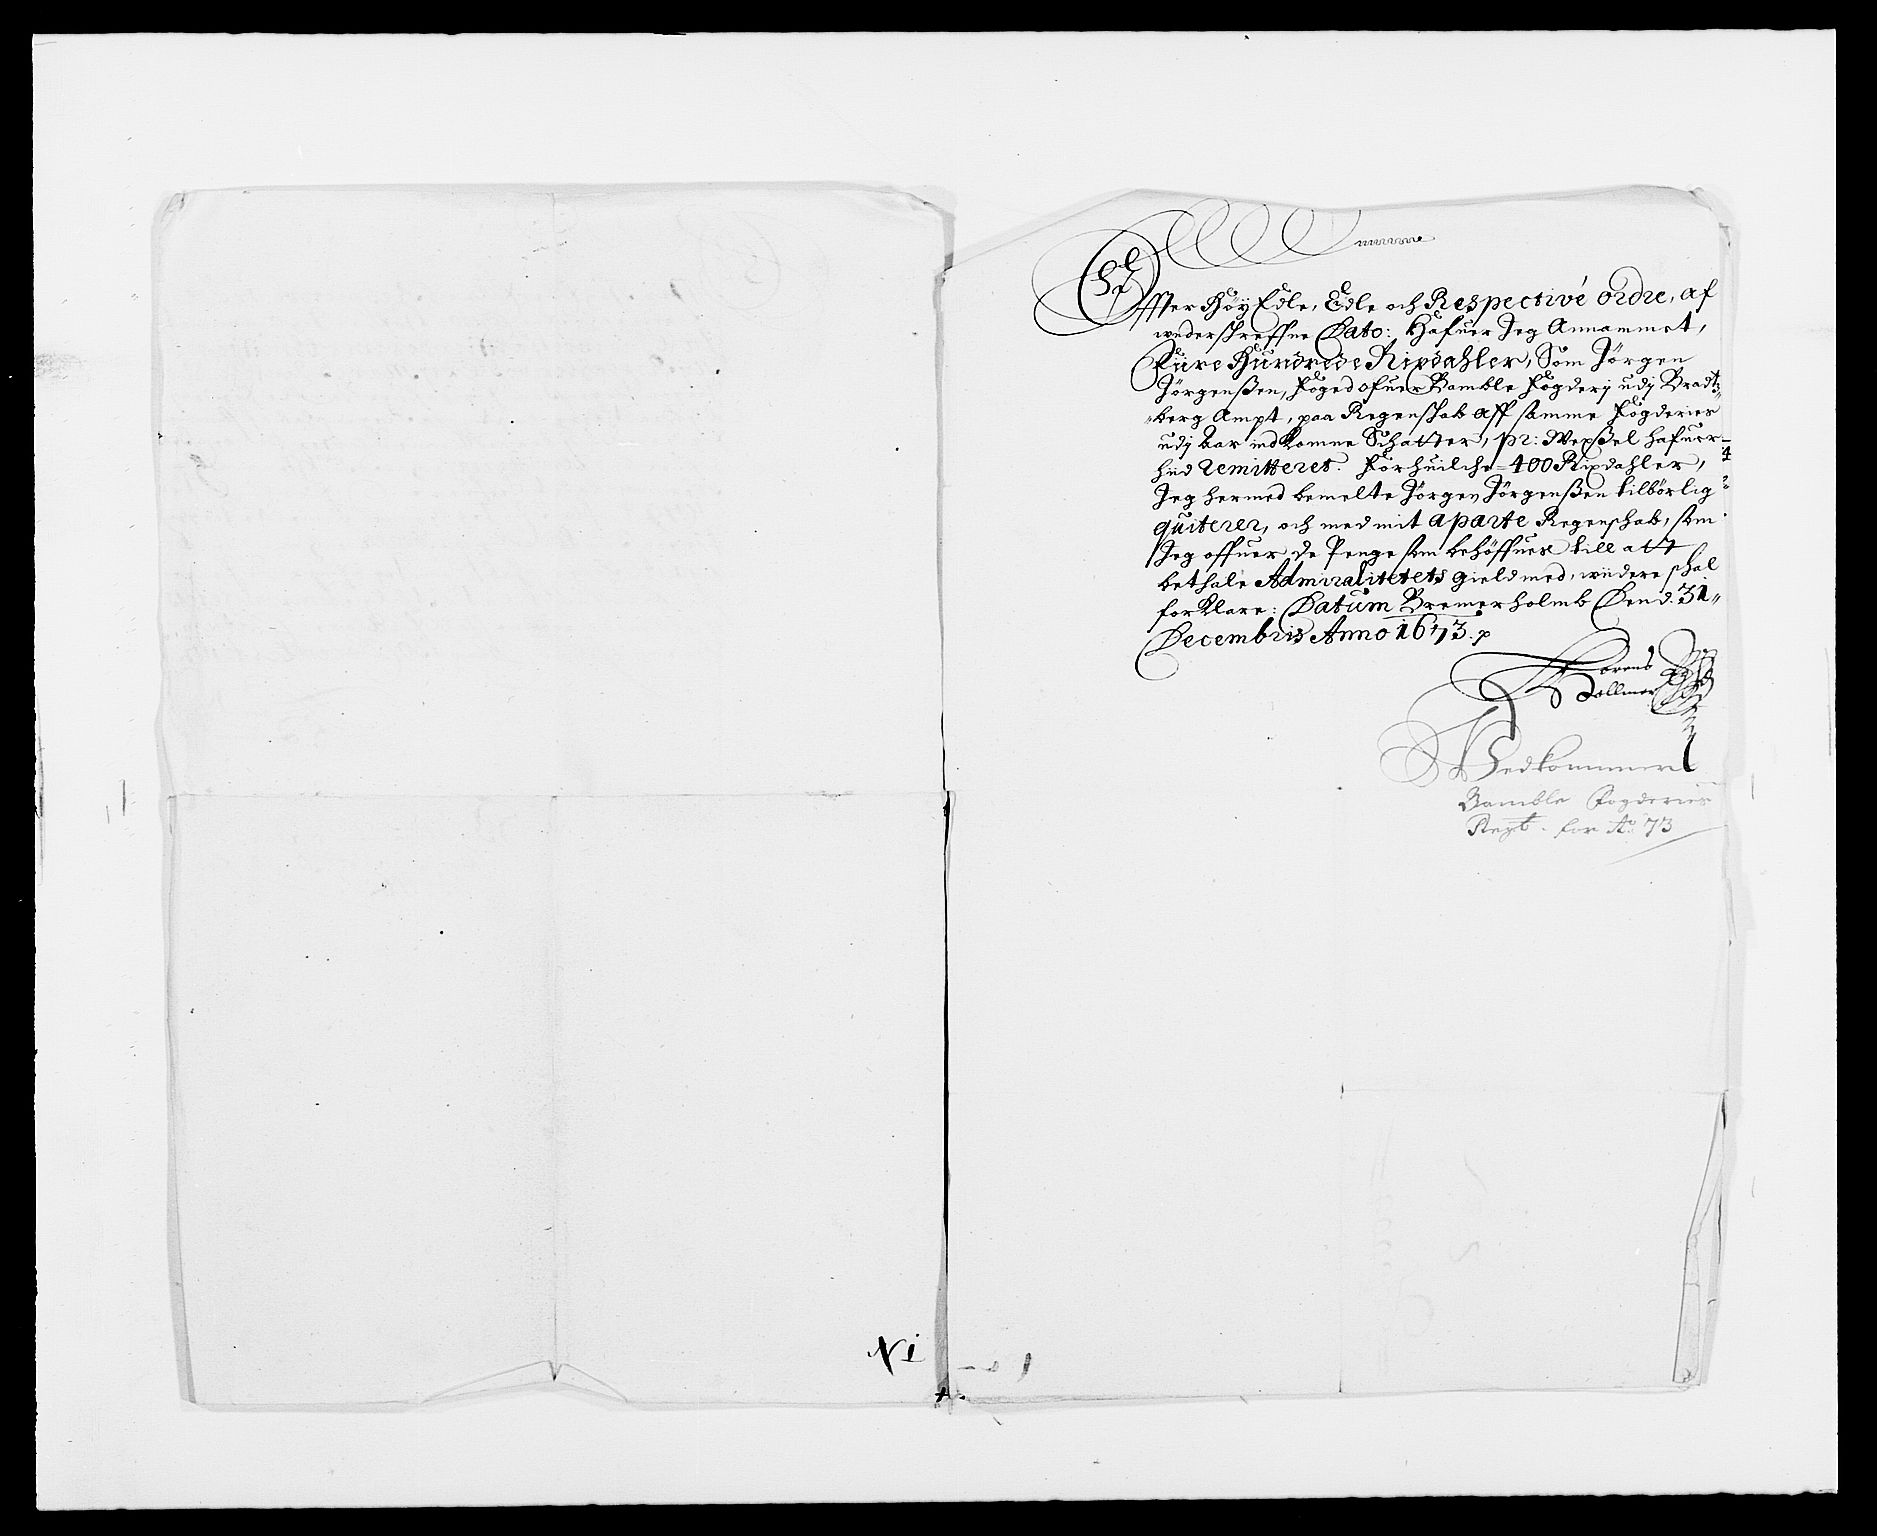 Effter Höy Edle, Edle och Respectivé ordre, af
underschreffne Dato: Hafuer Jeg Annammet,
Fiire Hundrede Rixdahler, Som Jörgen
Jörgenßen, Foged ofuer Bamble Fögderj udj Bradtz„
„berg Ampt, paa Regenskab aff samme Fögderies
udj bar indkomne Schatter, pr: Wexßel hafuer
hid remitteret. För huilche = 400 Rixdahler,
Jeg hermed bemelte Jörgen Jörgenßen tilbörlig
quiterer, och med mit aparte Regenschab, som
Jeg offuer de Penge som behöffues till att
bethale Admiralitetets gield med, widere schal
forklare: Datum Bremerholmb Den d. 31„
Decembris Anno 1673.
Lorens
Vollmer
Vedkommer
Bamble Fogderies
Regsb. for Ao 73